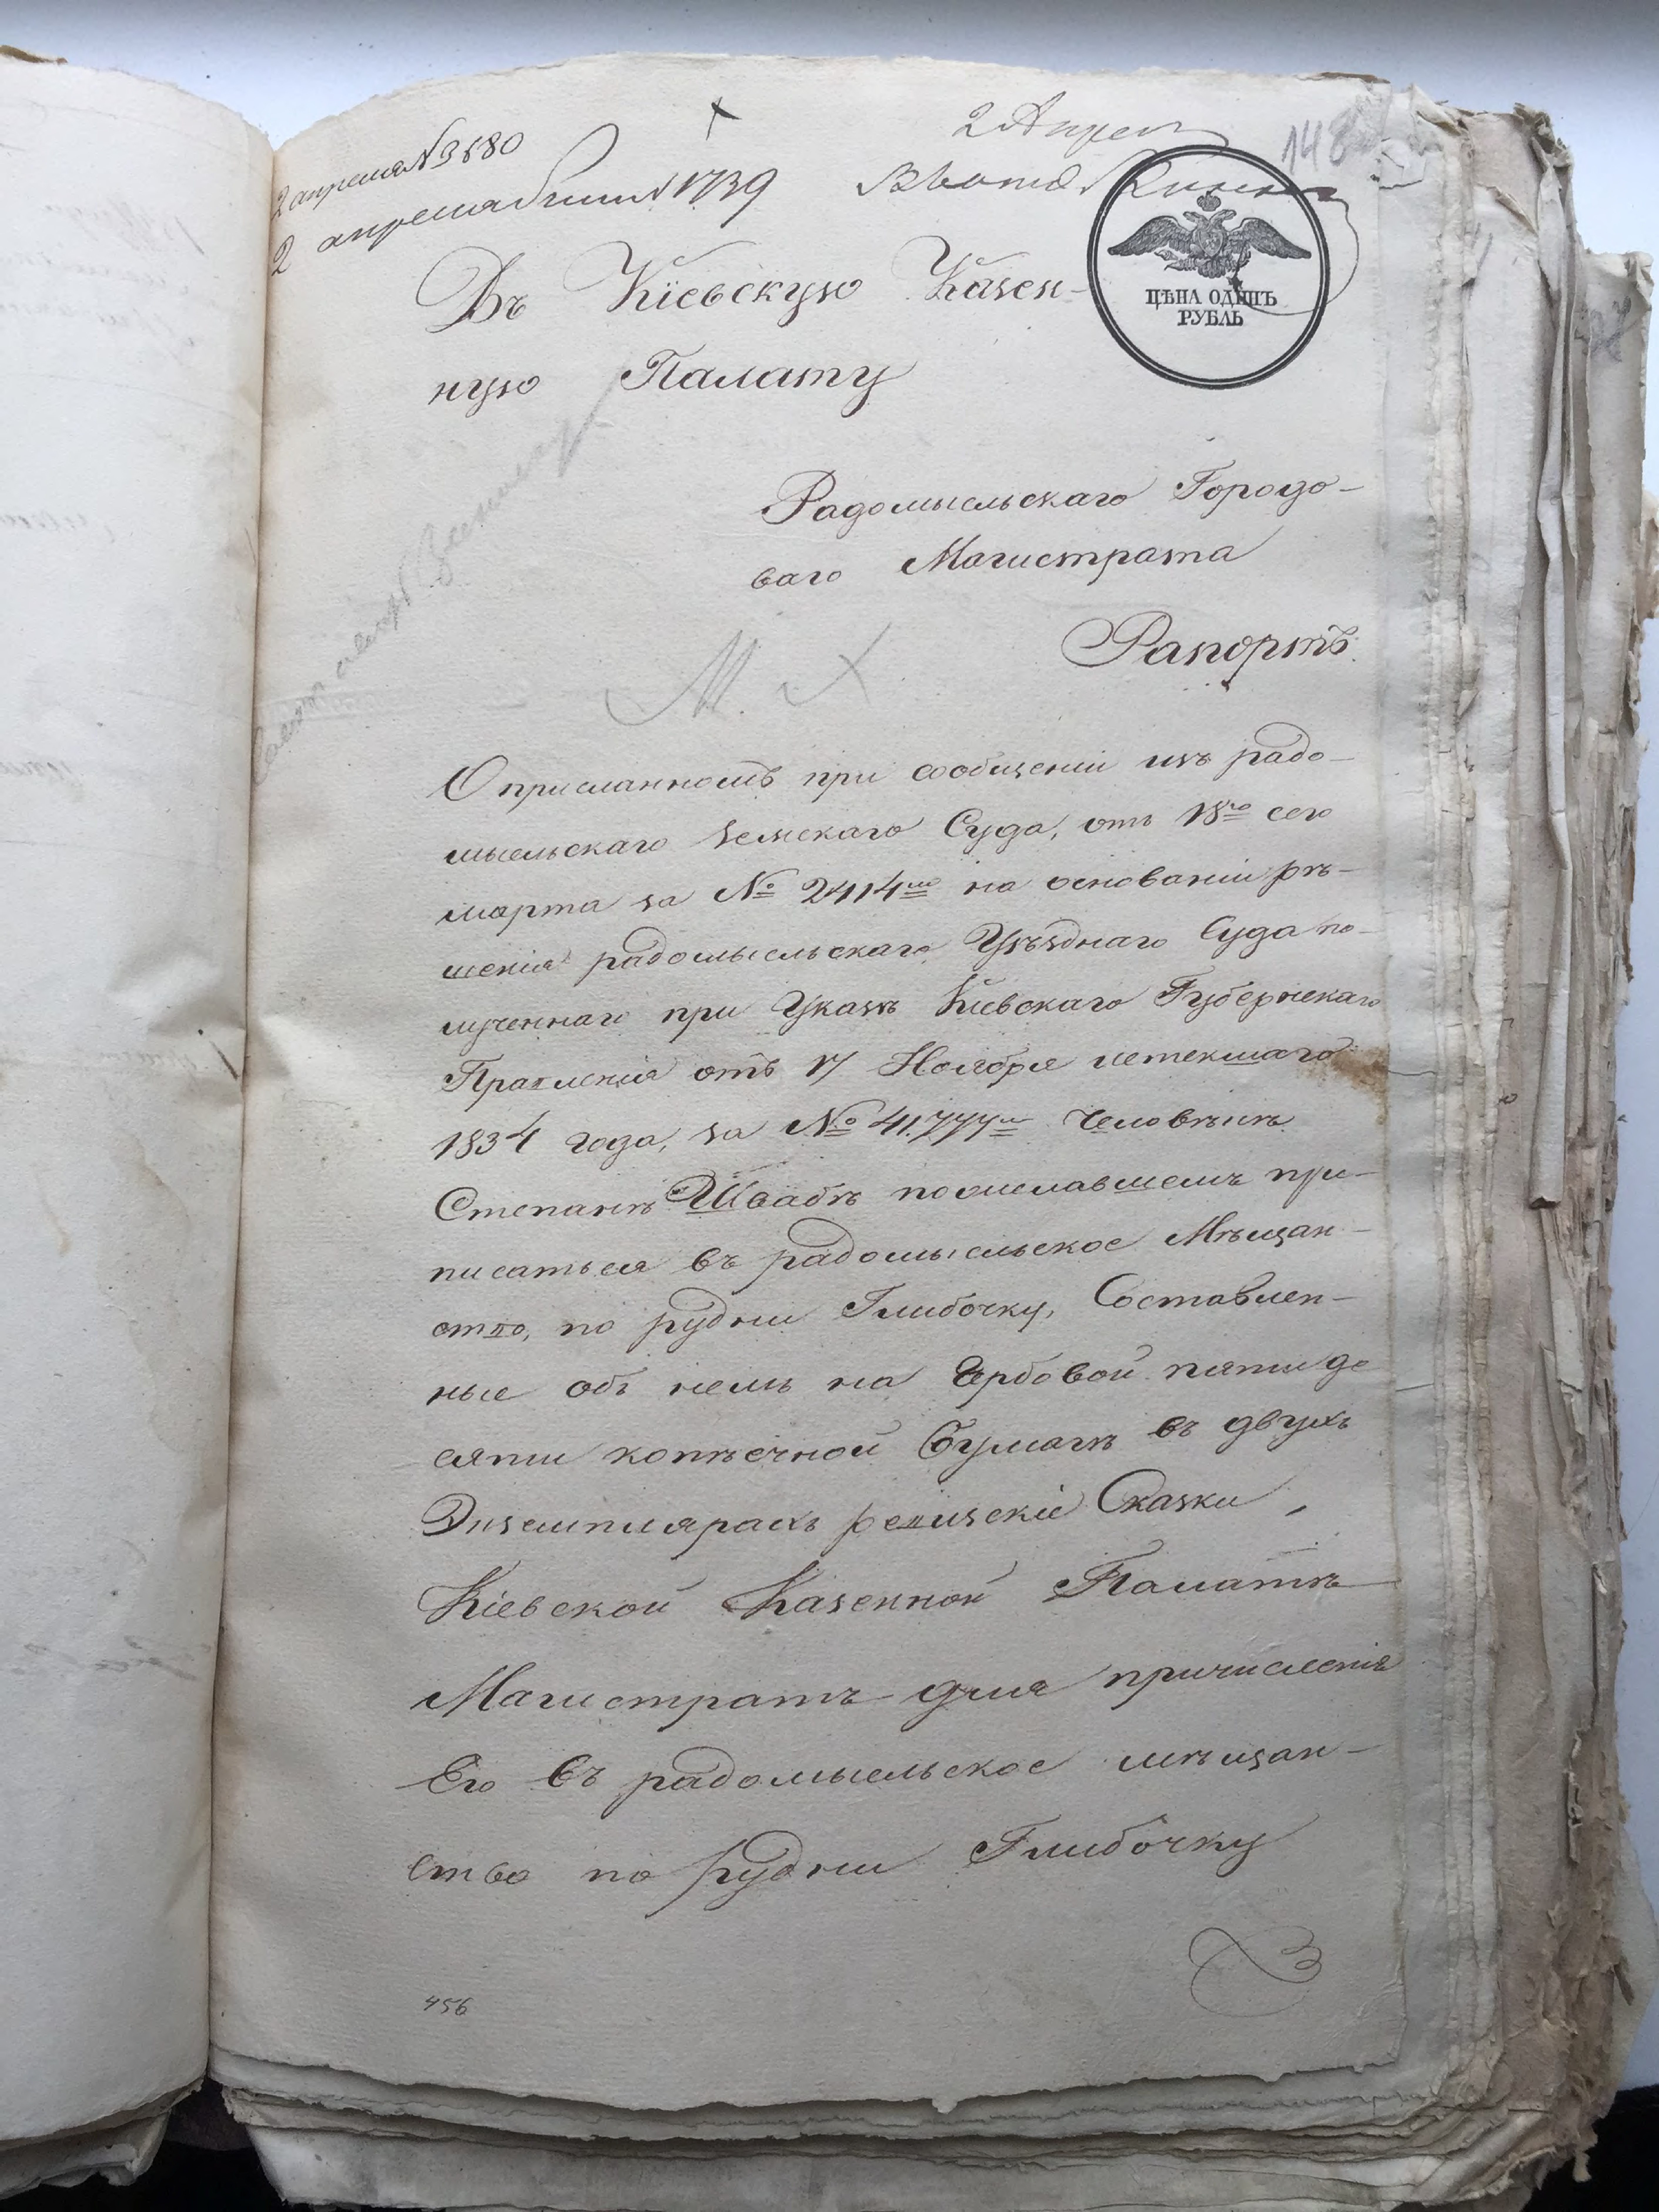 2 апреля № 3580
2 апреля № 1739
2 Апрел
148
Въ Кіевскую Казен-
ЦѢНА ОДИНЪ
РУБЛЬ
ную Палату
Радомысльскаго Городо-
ваго Магистрата
Рапортъ.
М.
О присланномъ при сообщеніи изъ радо-
мысльскаго земскаго Суда, отъ 18го сего
марта за № 2414мъ на основаніи рѣ-
шенія радомысльскаго Уѣзднаго Суда по-
лученнаго при Указѣ Кіевскаго Губернскаго
Правленія отъ 17 Ноября истекшаго
1834 года, за № 41,777мъ человѣкѣ
Степанѣ Швабѣ пожелавшемъ при-
писаться въ радомысльское Мѣщан-
ство, по рудни Глибочку, Составлен-
ные объ немъ на Гербовой пятиде
сяти копѣечной бумагѣ въ двухъ
Экземплярахъ ревизскіе Сказки,
Кіевской Казенной Палатѣ
Магистратъ для причисленія
Его въ радомысльское мѣщан-
ство по рудни Глибочку
456